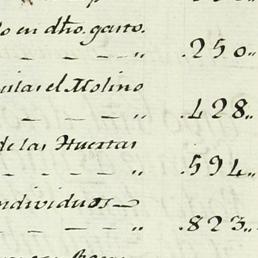 o en dho. gasto.
— — — „ .250„
uilas el Molino
— — — „ .428„
de las Huertas
— — — „ .594„
ndividuos—
— — — „ .823„